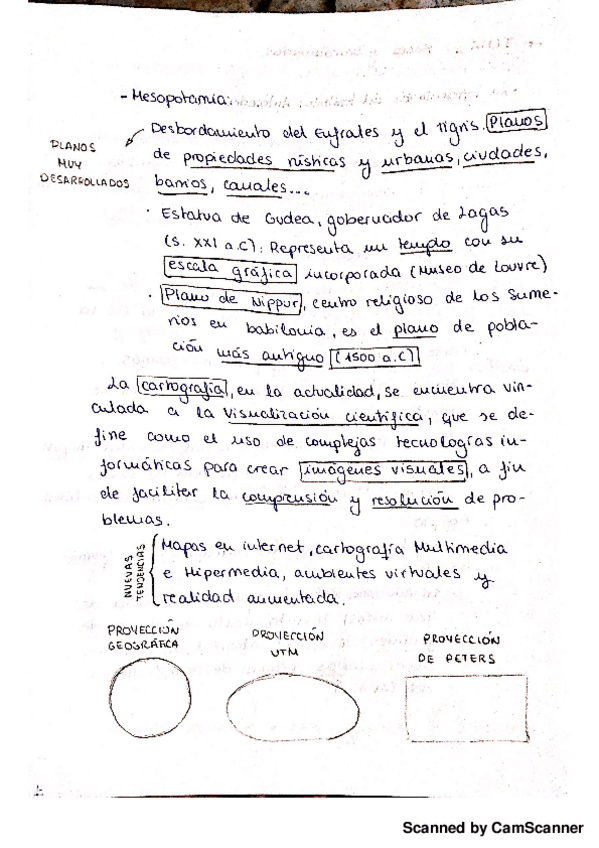 - Mesopotamia:
Desbordamiento del Eufrates y el Tigris. Planos
PLANOS
MUY
DESARROLLADOS
de propiedades rústicas y urbanas, ciudades,
barrios, canales...
· Estatua de Gudea, gobernador de Lagas
(s. XXI a.C): Representa un templo con su
escala gráfica incorporada (Museo de Louvre)
· Plano de Nippur, centro religioso de los Sume-
rios en babilonia, es el plano de pobla-
ción más antiguo (1500 a.C)
La cartografía, en la actualidad, se encuentra vin-
culada a la visualización científica, que se de-
fine como el uso de complejas tecnologías in-
formáticas para crear imágenes visuales, a fin
de facilitar la comprensión y resolución de pro-
blemas.
NUEVAS
TENDENCIAS
Mapas en internet, cartografía Multimedia
e Hipermedia, ambientes virtuales y
realidad aumentada.
PROYECCIÓN
GEOGRÁFICA
PROYECCIÓN
UTM
PROYECCIÓN
DE PETERS
Scanned by CamScanner